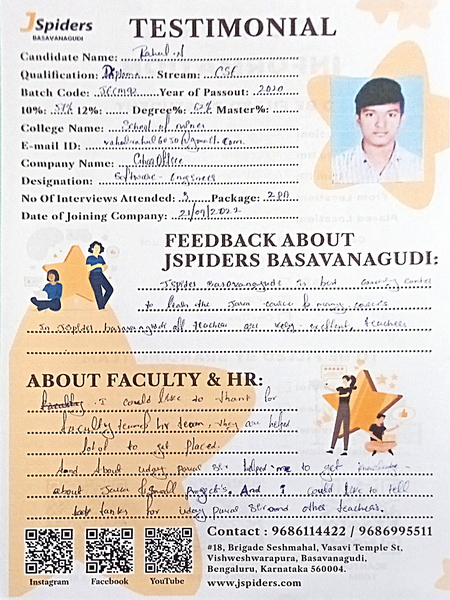 JSpiders
BASAVANAGUDI
TESTIMONIAL
Candidate Name: Rahul .N
Qualification: Diploma Stream: CSE
Batch Code: Year of Passout: 2020
10%: 51% 12% Degree%: 62% Master%:
College Name: School of mines
E-mail ID:
Company Name:
Designation: Software - Engineer
No Of Interviews Attended: 3 Package: 2 PA
Date of Joining Company: 21/09/2022
FEEDBACK ABOUT
JSPIDERS BASAVANAGUDI:
Jspiders Basavanagudi is best
to learn the Java course & many
In Jspiders, basavanagudi all teachers are very excellent, teachers
ABOUT FACULTY & HR:
Faculty I could like to thank for
faculty team & hr team, They are helped
lot of to get placed.
And About uday pawal sir helped me to get
about Java & small projects. And I could like to tell
tanks for uday pawal sir and other teachers.
Instagram Facebook YouTube
Contact : 9686114422 / 9686995511
#18, Brigade Seshmahal, Vasavi Temple St,
Vishweshwarapura, Basavanagudi,
Bengaluru, Karnataka 560004.
www.jspiders.com